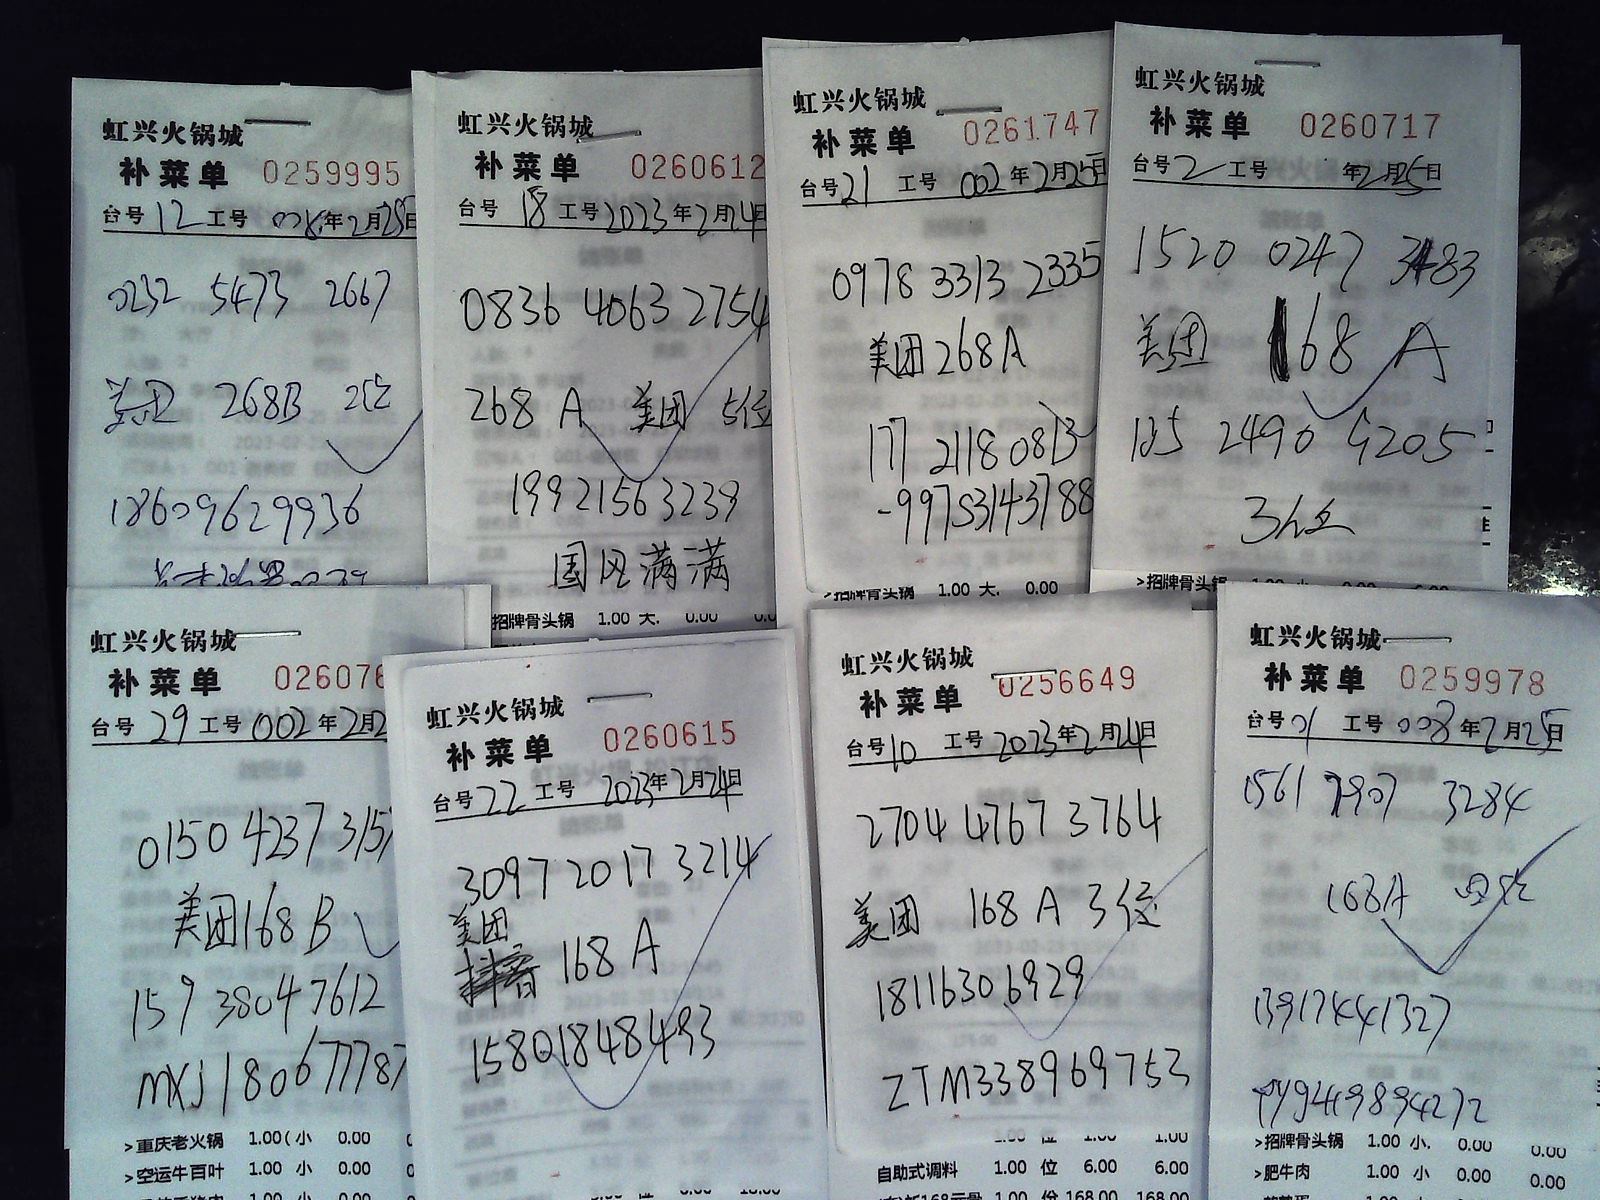 虹兴火锅城
补菜单 0259995
台号 12 工号 008 年 2 月 25 日
0232 5473 2667
美团 268B 2位
18609629936
虹兴火锅城
补菜单 0260612
台号 18 工号 2023 年 2 月 24 日
0836 4063 2754
268 A 美团 5位
19921563239
国风满满
招牌骨头锅 1.00 大. 0.00
虹兴火锅城
补菜单 0261747
台号 21 工号 002 年 2 月 25 日
0978 3313 2335
美团 268 A
177 2118 0813
-99753143788
>招牌骨头锅 1.00 大. 0.00
虹兴火锅城
补菜单 0260717
台号 2 工号 年 2 月 25 日
1520 0247 3483
美团 168 A
135 2490 5205
3人位
>招牌骨头锅 1.00 小 0.00
虹兴火锅城
补菜单 026076
台号 29 工号 002 年 2 月 2
0150 4237 3157
美团 168 B
159 3804 7612
mxj180677787
>重庆老火锅 1.00( 小 0.00
>空运牛百叶 1.00 小 0.00
虹兴火锅城
补菜单 0260615
台号 22 工号 2023 年 2 月 24 日
3097 2017 3214
美团
168 A
15801848493
虹兴火锅城
补菜单 0256649
台号 10 工号 2023 年 2 月 24 日
2704 4767 3764
美团 168 A 3位
18116306929
ZTM338969753
1.00 位 1.00 1.00
自助式调料 1.00 位 6.00 6.00
1.00 份 168.00 168.00
虹兴火锅城
补菜单 0259978
台号 01 工号 008 年 2 月 25 日
1561 7907 3284
168A 四位
13917441327
>招牌骨头锅 1.00 小. 0.00 0.00
>肥牛肉 1.00 小 0.00 0.00